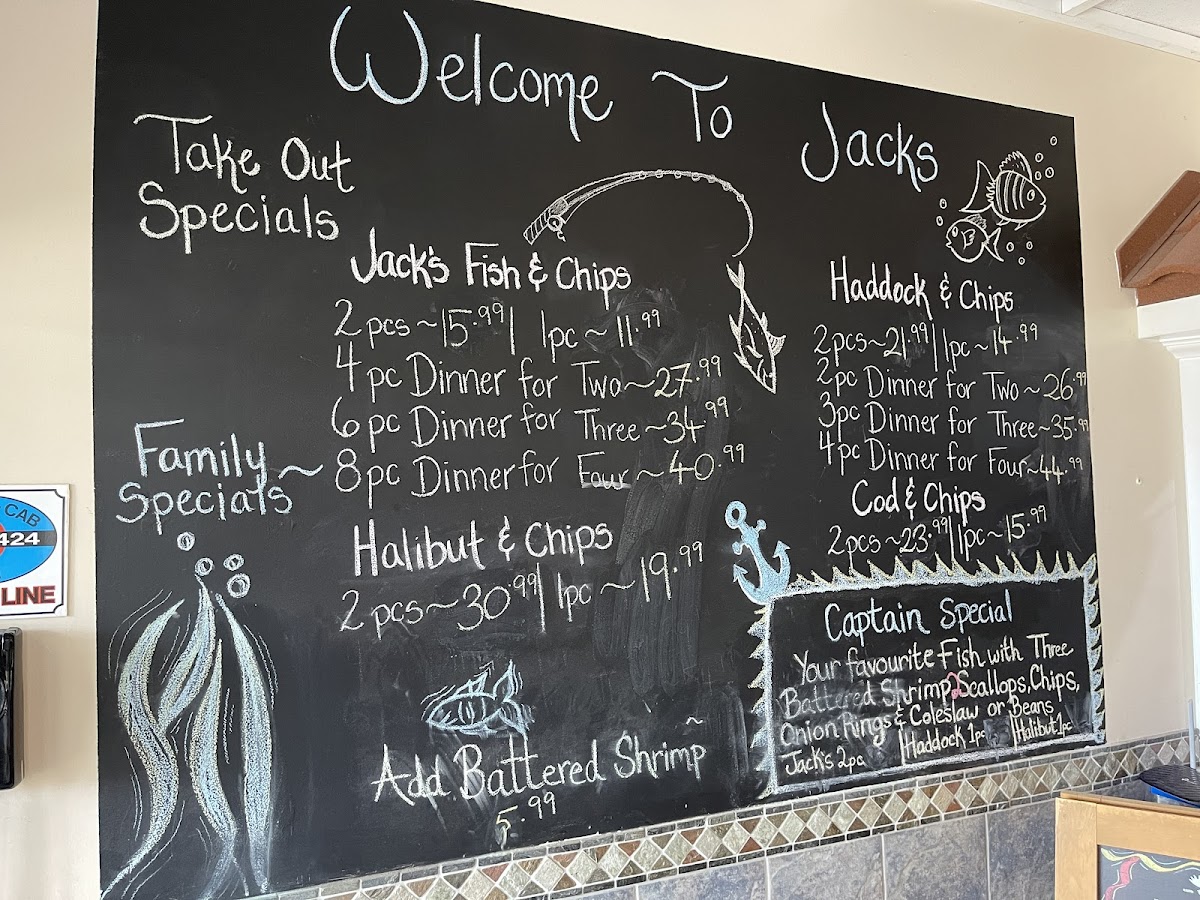 Welcome To Jacks
Take Out
Specials
Jack's Fish & Chips
2 pcs ~ 15.99 | 1pc ~ 11.99
4 pc Dinner for Two ~ 27.99
6 pc Dinner for Three ~ 34.99
Family
Specials ~
8 pc Dinner for Four ~ 40.99
Halibut & Chips
2 pcs ~ 30.99 | 1pc ~ 19.99
Add Battered Shrimp ~
5.99
Haddock & Chips
2 pcs ~ 21.99 | 1pc ~ 14.99
2pc Dinner for Two ~ 26.99
3pc Dinner for Three ~ 35.99
4pc Dinner for Four ~ 44.99
Cod & Chips
2pcs ~ 23.99 | 1pc ~ 15.99
Captain Special
Your favourite Fish with Three
Battered Shrimp, 2 Scallops, Chips,
Onion Rings & Coleslaw or Beans
Jack's 2pc | Haddock 1pc | Halibut 1pc
CAB
424
LINE